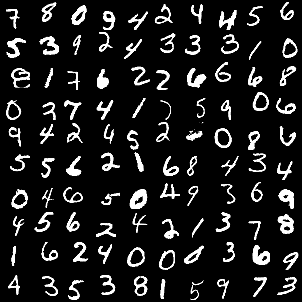 7 8 0 9 4 2 4 4 5 6
5 3 9 2 4 3 3 3 1 0
8 1 7 6 2 2 6 6 6 8
0 3 7 4 1 5 9 0 6
9 4 2 4 5 2 0 8 6
5 5 6 2 1 6 8 4 3 4
0 4 6 5 0 4 9 3 6 9
4 5 6 2 4 2 1 3 7 8
1 6 2 4 0 0 3 6 9
4 3 5 3 8 1 5 9 7 3